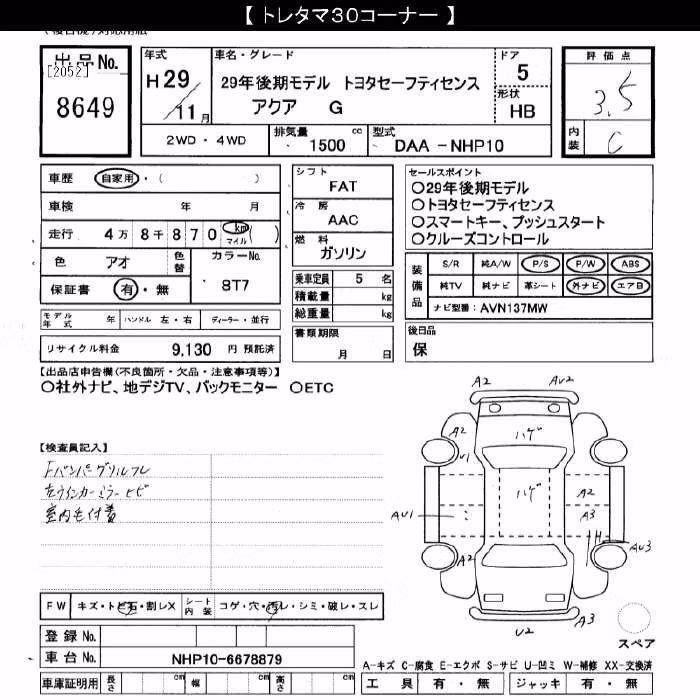 【 トレタマ30コーナー 】
出品No.
[2052]
8649
年式
H29
11月
車名・グレード
29年後期モデル トヨタセーフティセンス
アクア G
ドア
5
形状
HB
評価点
3.5
内装
C
2WD・4WD
排気量
1500 cc
型式
DAA-NHP10
車歴
自家用・( )
車検 年 月
走行 4万 8千 8 7 0 km マイル ( )
色 アオ
色替
カラーNo.
8T7
保証書 有・無
シフト
FAT
冷房
AAC
燃料
ガソリン
乗車定員 5 名
積載量 kg
総重量 kg
書類期限
月 日
セールスポイント
○29年後期モデル
○トヨタセーフティセンス
○スマートキー、プッシュスタート
○クルーズコントロール
装備品
S/R 純A/W P/S P/W ABS
純TV 純ナビ 革シート 外ナビ エアB
ナビ型番: AVN137MW
モデル年式 年 ハンドル 左・右 ディーラー・並行
リサイクル料金 9,130 円 預託済
後日品
保
【出品店申告欄(不良箇所・欠品・注意事項等)】
○社外ナビ、地デジTV、バックモニター ○ETC
【検査員記入】
Fバンパーグリルフレ
左ウインカーミラーヒビ
室内毛付着
A2 AU2
A2 ハゲ
U1
ハゲ A2
AU1 A3
A2 AU3
U2 A3
スペア
FW キズ・トビ石・割レX
シート内装 コゲ・穴・汚レ・シミ・破レ・スレ
登録No.
車台No. NHP10-6678879
A-キズ C-腐食 E-エクボ S-サビ U-凹ミ W-補修 XX-交換済
車庫証明用 長さ cm 幅 cm 高さ cm
工具 有・無 ジャッキ 有・無